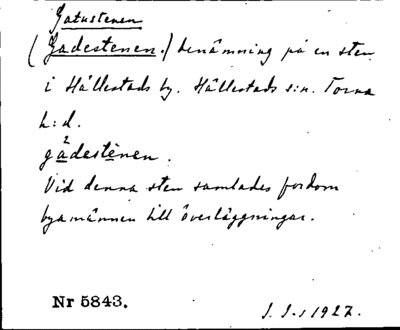 Gatustenen
(Gadestenen.) benämning på en sten
i Hällestads by. Hällestads s:n. Torna
h:d.
gådestènen.
Vid denna sten samlades fordom
byamännen till överläggningar.
Nr 5843.
1927.